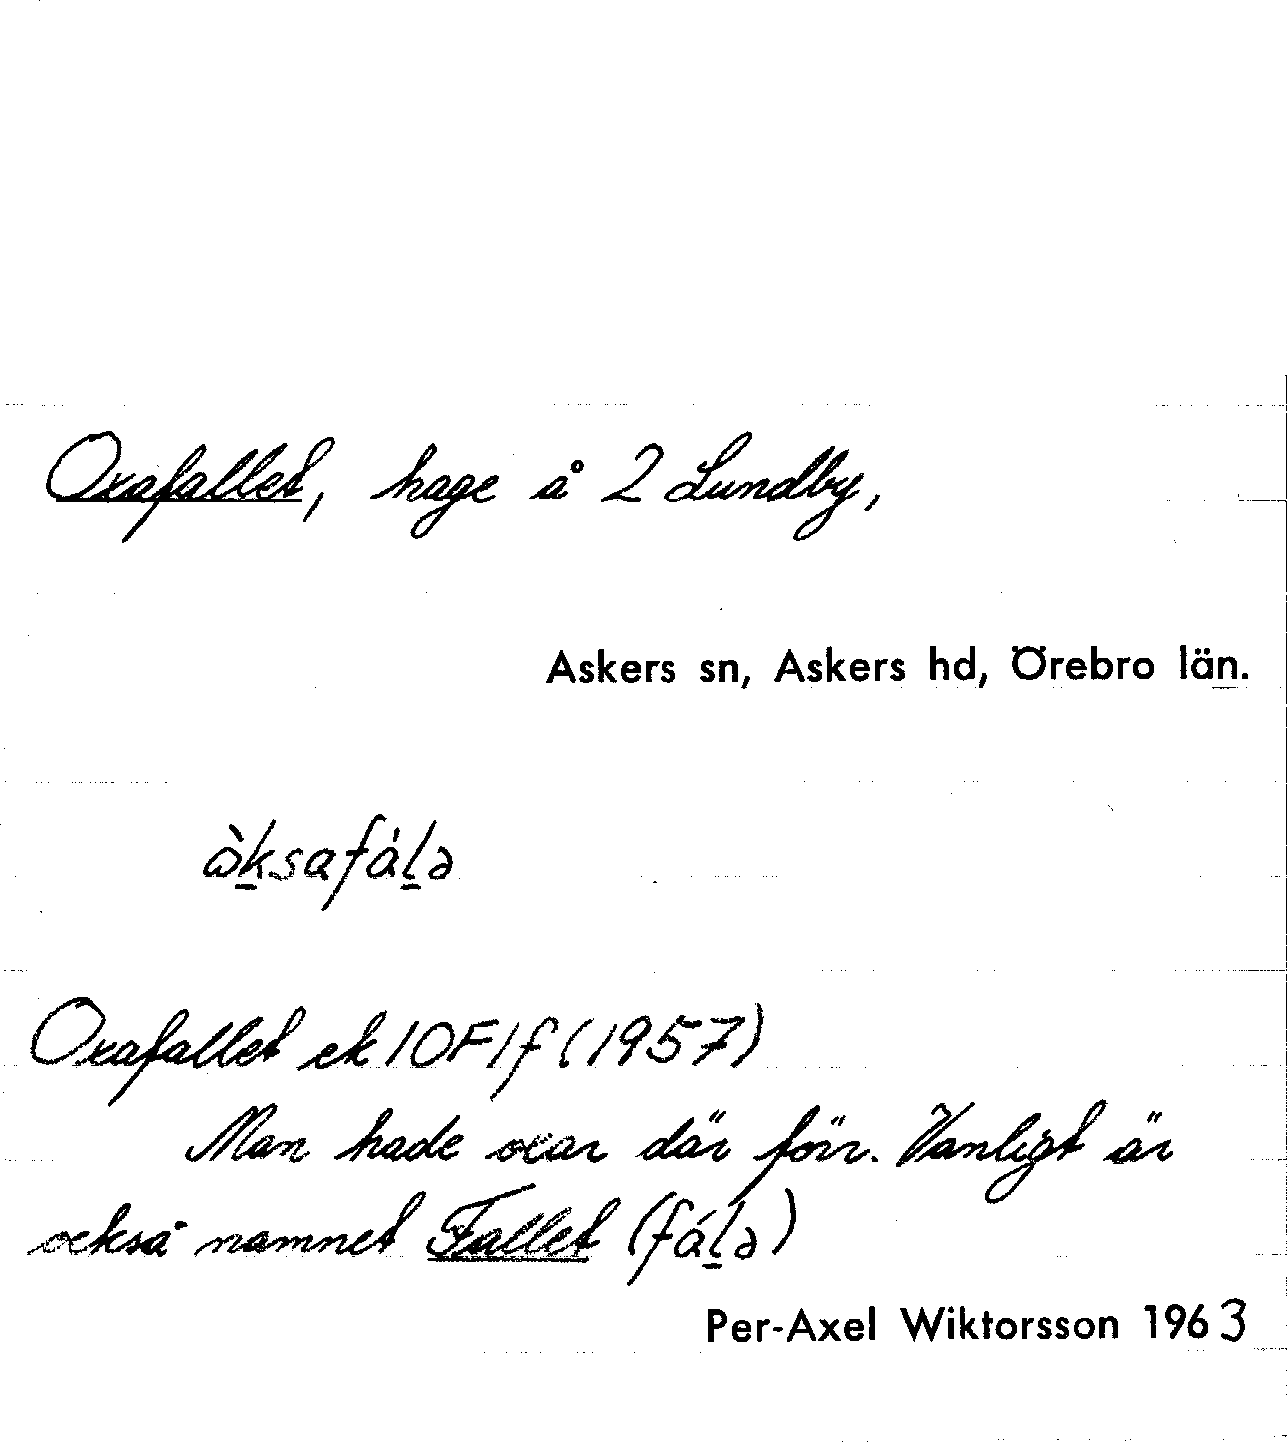 Oxafallet, hage å 2 Lundby,
Askers sn, Askers hd, Örebro län.
ὼk̲safàl̲ə
Oxafallet ek 10F1f (1957)
Man hade oxar där förr. Vanligt är
också namnet Fallet (fál̲ə)
Per-Axel Wiktorsson 1963